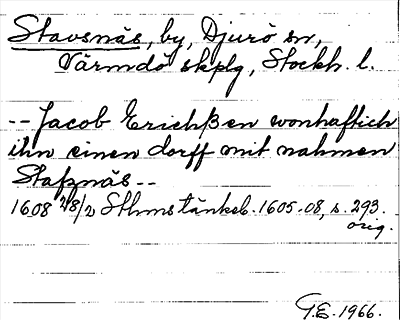 Stavsnäs, by, Djurö sn,
Värmdö skplg, Stockh. l.
-- Jacob Erichßen wonhaftich
ihn einen dorff mit nahmen
Stafznäs --
1608 2/8 Sthms tänkeb. 1605-08, s. 293.
orig.
G.E. 1966.